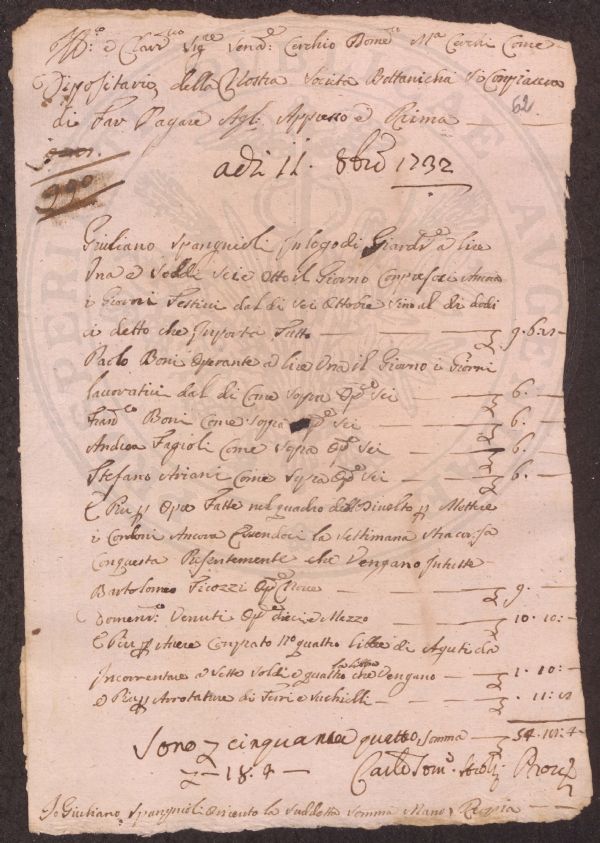 e Clar.mo Sig.re Cerchio Dom.co M.a Cerchi Come
Dipositario della Nostra Societa Bottanicha Si Conpiacera
62
di Far Pagare Agl. Appresso e Prima
990
adi 11. 8bre 1732
Giuliano Spangnioli In logo di Giard.re a lire
Una e Soldi Seie Otto il Giorno Conpresoci Ancora
i Giorni Festivi dal di Sei Ottobre Sino al di dodi
ci detto che Inporta Tutto 9.
Paolo Boni Operante a lire Una il Giorno i Giorni
lavorativi dal di Come Sopra Op.e Sei 6.
Fran.co Boni Come Sopra Op.e Sei 6.
Andrea Fagioli Come Sopra Op.e Sei 6.
Stefano Ariani Come Sopra Op.e Sei 6.
E Piu p Ope Fatte nel quadro del Divolto p Mettere
i Cordoni Ancora Essendoci la Settimana
Conquesta Presentemente che Vengano
Bartolomeo Op.e Nove 9.
Domeni.co Venuti Op.e dieci e Mezzo 10. 10:
E Piu p Avere Conprato N.o quattro Libbre di Aguti da
Incorrentare a Sette Soldi e quattro la Libbra che Vengano 1. 10:
e Piu p Arrotature di Ferri e 11:
Sono cinquanta quattro Somma 54. 18: 4
18: 4 Carlo
Io Giuliano Spangnioli ricevto la Suddetta Somma Mano Propia